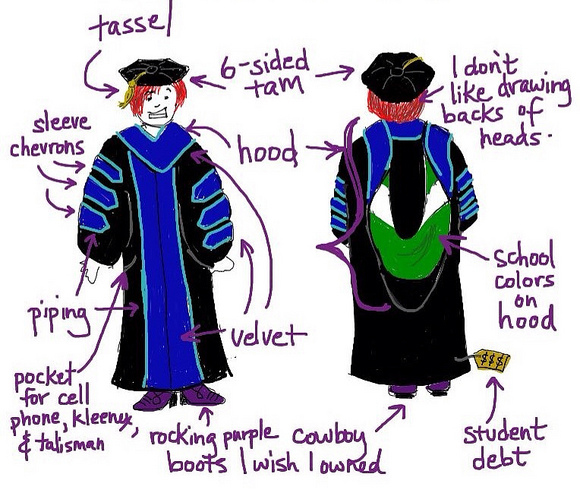 tassel
6-sided
tam
I don't
like drawing
backs of
heads.
sleeve
chevrons
hood
school
colors
on
hood
piping
velvet
$$$
pocket
for cell
phone, kleenex,
& talisman
rocking purple cowboy
boots I wish I owned
student
debt